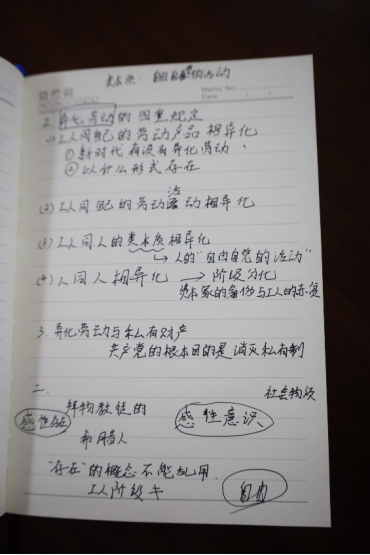 类本质：自由自觉的活动
Memo No.
Date / /
2. 异化劳动的四重规定
→工人同自己的劳动产品相异化
① 新时代有没有异化劳动
② 以什么形式存在
(2) 工人同自己的劳动活动相异化
(3) 工人同人的类本质相异化
→人的"自由自觉的活动"
(4) 人同人相异化 → 阶级分化
资本家的奢侈与工人的赤贫
3. 异化劳动与私有财产
共产党的根本目的是消灭私有制
二、 社会物质
拜物教徒的
感性存在 感性意识
希腊人
"存在"的概念不能乱用
工人阶级
自由